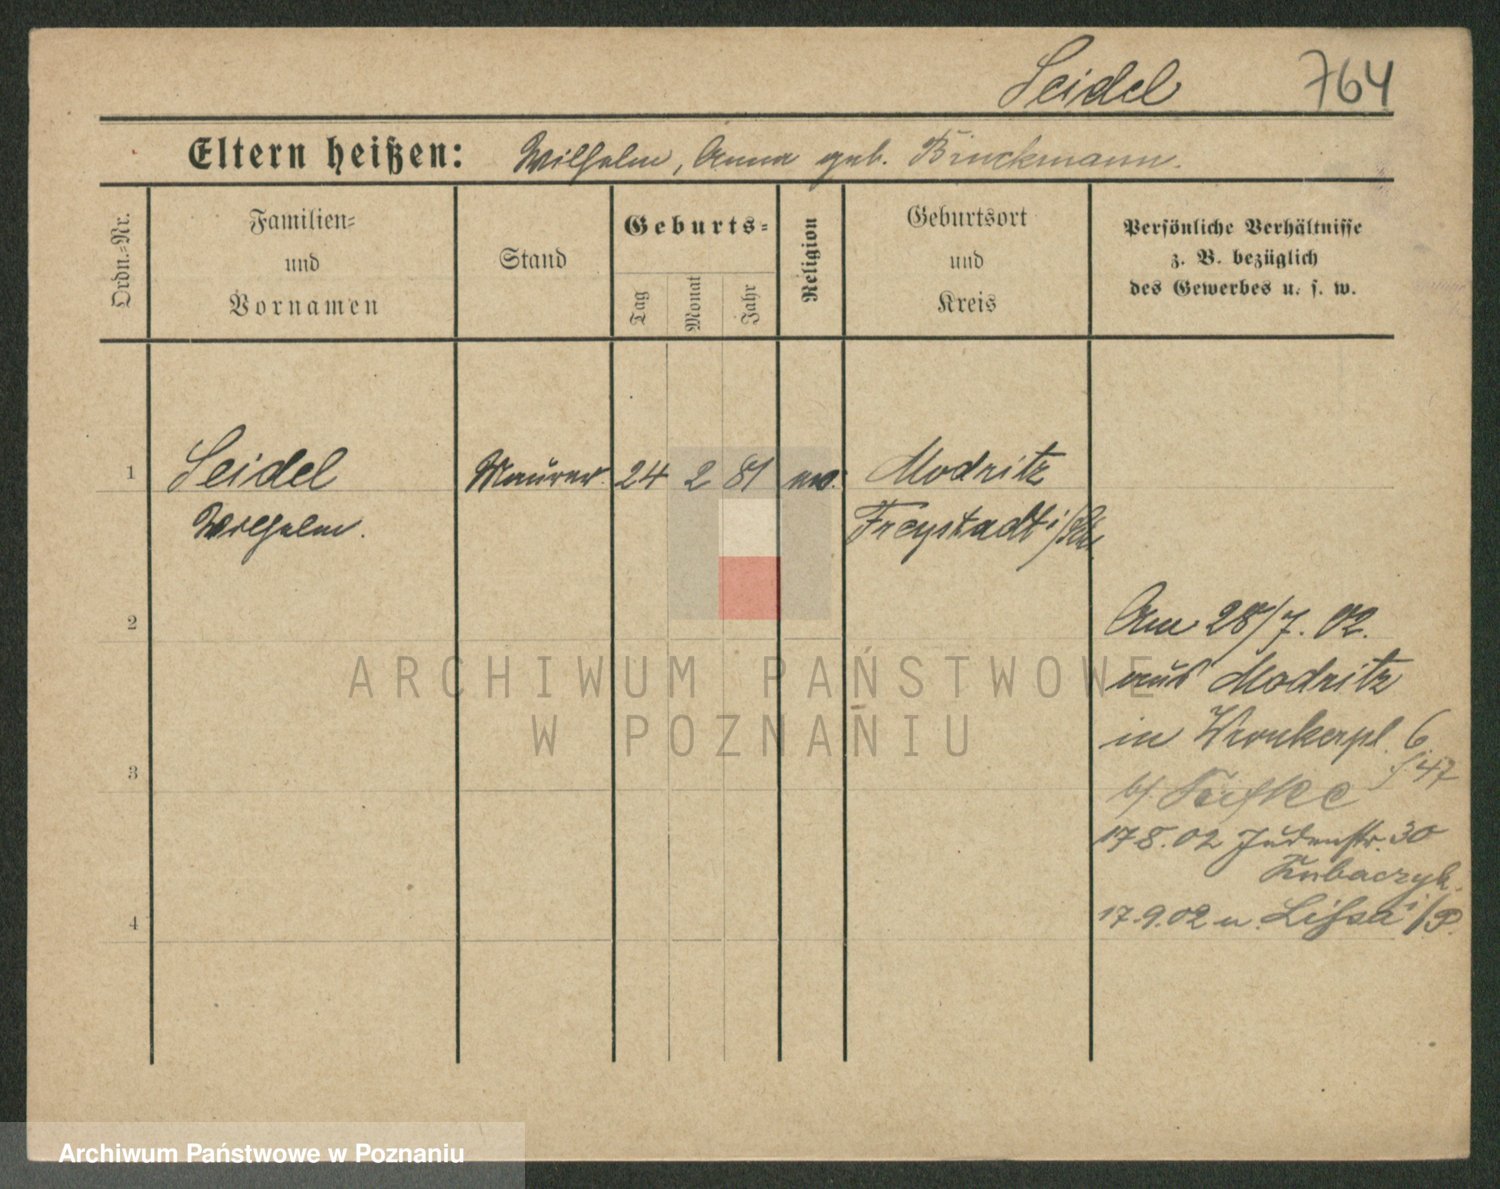 Seidel 764
Eltern heißen: Wilhelm, Anna geb. Bruckmann.
Ordn.-Nr.
Familien-
und
Vornamen
Stand
Geburts-
Tag
Monat
Jahr
Religion
Geburtsort
und
Kreis
Persönliche Verhältnisse
z. B. bezüglich
des Gewerbes u. s. w.
1 Seidel Maurer 24 2 81 ev. Modritz
Wilhelm. Freystadt i/Schl.
2
Am 28/7. 02.
aus Modritz
in Wronkerpl. 6
3
b/
17 8. 02 Judenstr. 30
Kubaczyk.
4
17. 9. 02 n. Lissa i/P.
ARCHIWUM PAŃSTWOWE
W POZNANIU
Archiwum Państwowe w Poznaniu